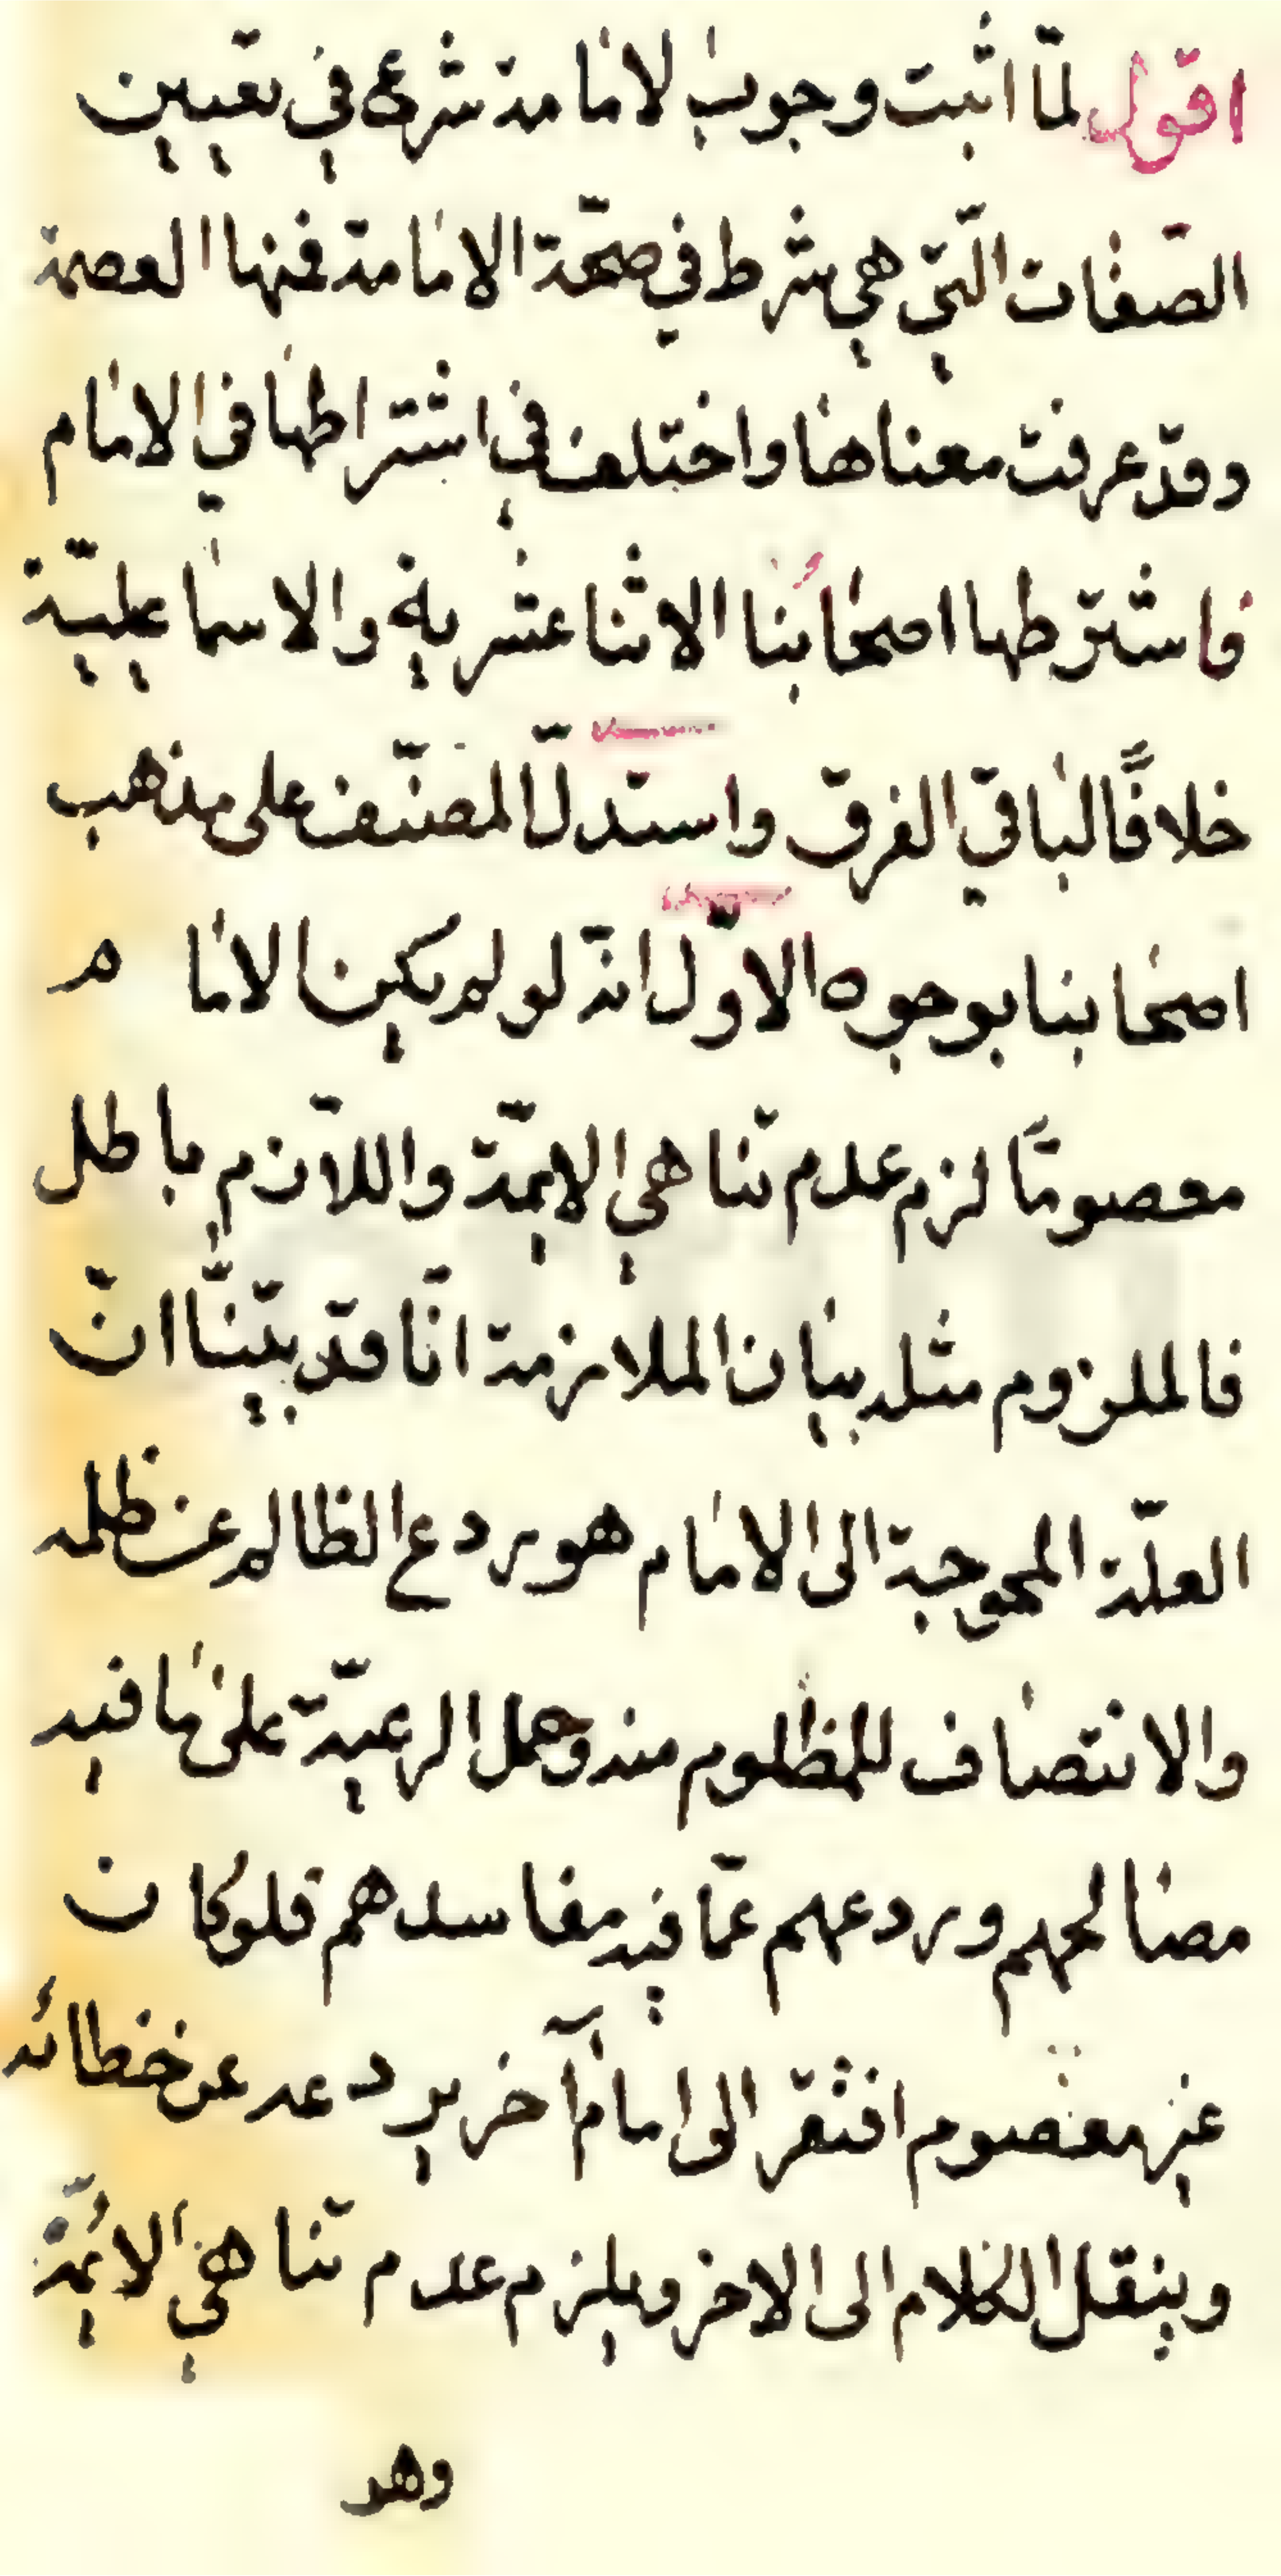 اقول لمّا اثبت وجوب الامامة شرع في تعيين
الصّفات الّتي هي شرط في صحّة الامامة فمنها العصمة
وقد عرفت معناها واختلف في اشتراطها في الامام
فاشترطها اصحابُنا الاثنا عشرية والاسماعيليّة
خلافًا لباقي الفرق واستدلّ المصنّف على مذهب
اصحابنا بوجوه الاوّل انّه لو لم يكن الاما م
معصومًا لزم عدم تناهي الايمّة واللاّزم باطل
فالملزوم مثله بيان الملازمة انّا قد بيّنّا انّ
العلّة المحوجة الى الامام هو ردع الظالم عن ظلمه
والانتصاف للمظلوم منه وحمل الرعيّة على ما فيه
مصالحهم وردعهم عمّا فيه مفاسدهم فلو كان
غير معصوم افتقر الى امام آخر يردعه عن خطائه
وينقل الكلام الى الاخر ويلزم عدم تناهي الائمّة
وهو